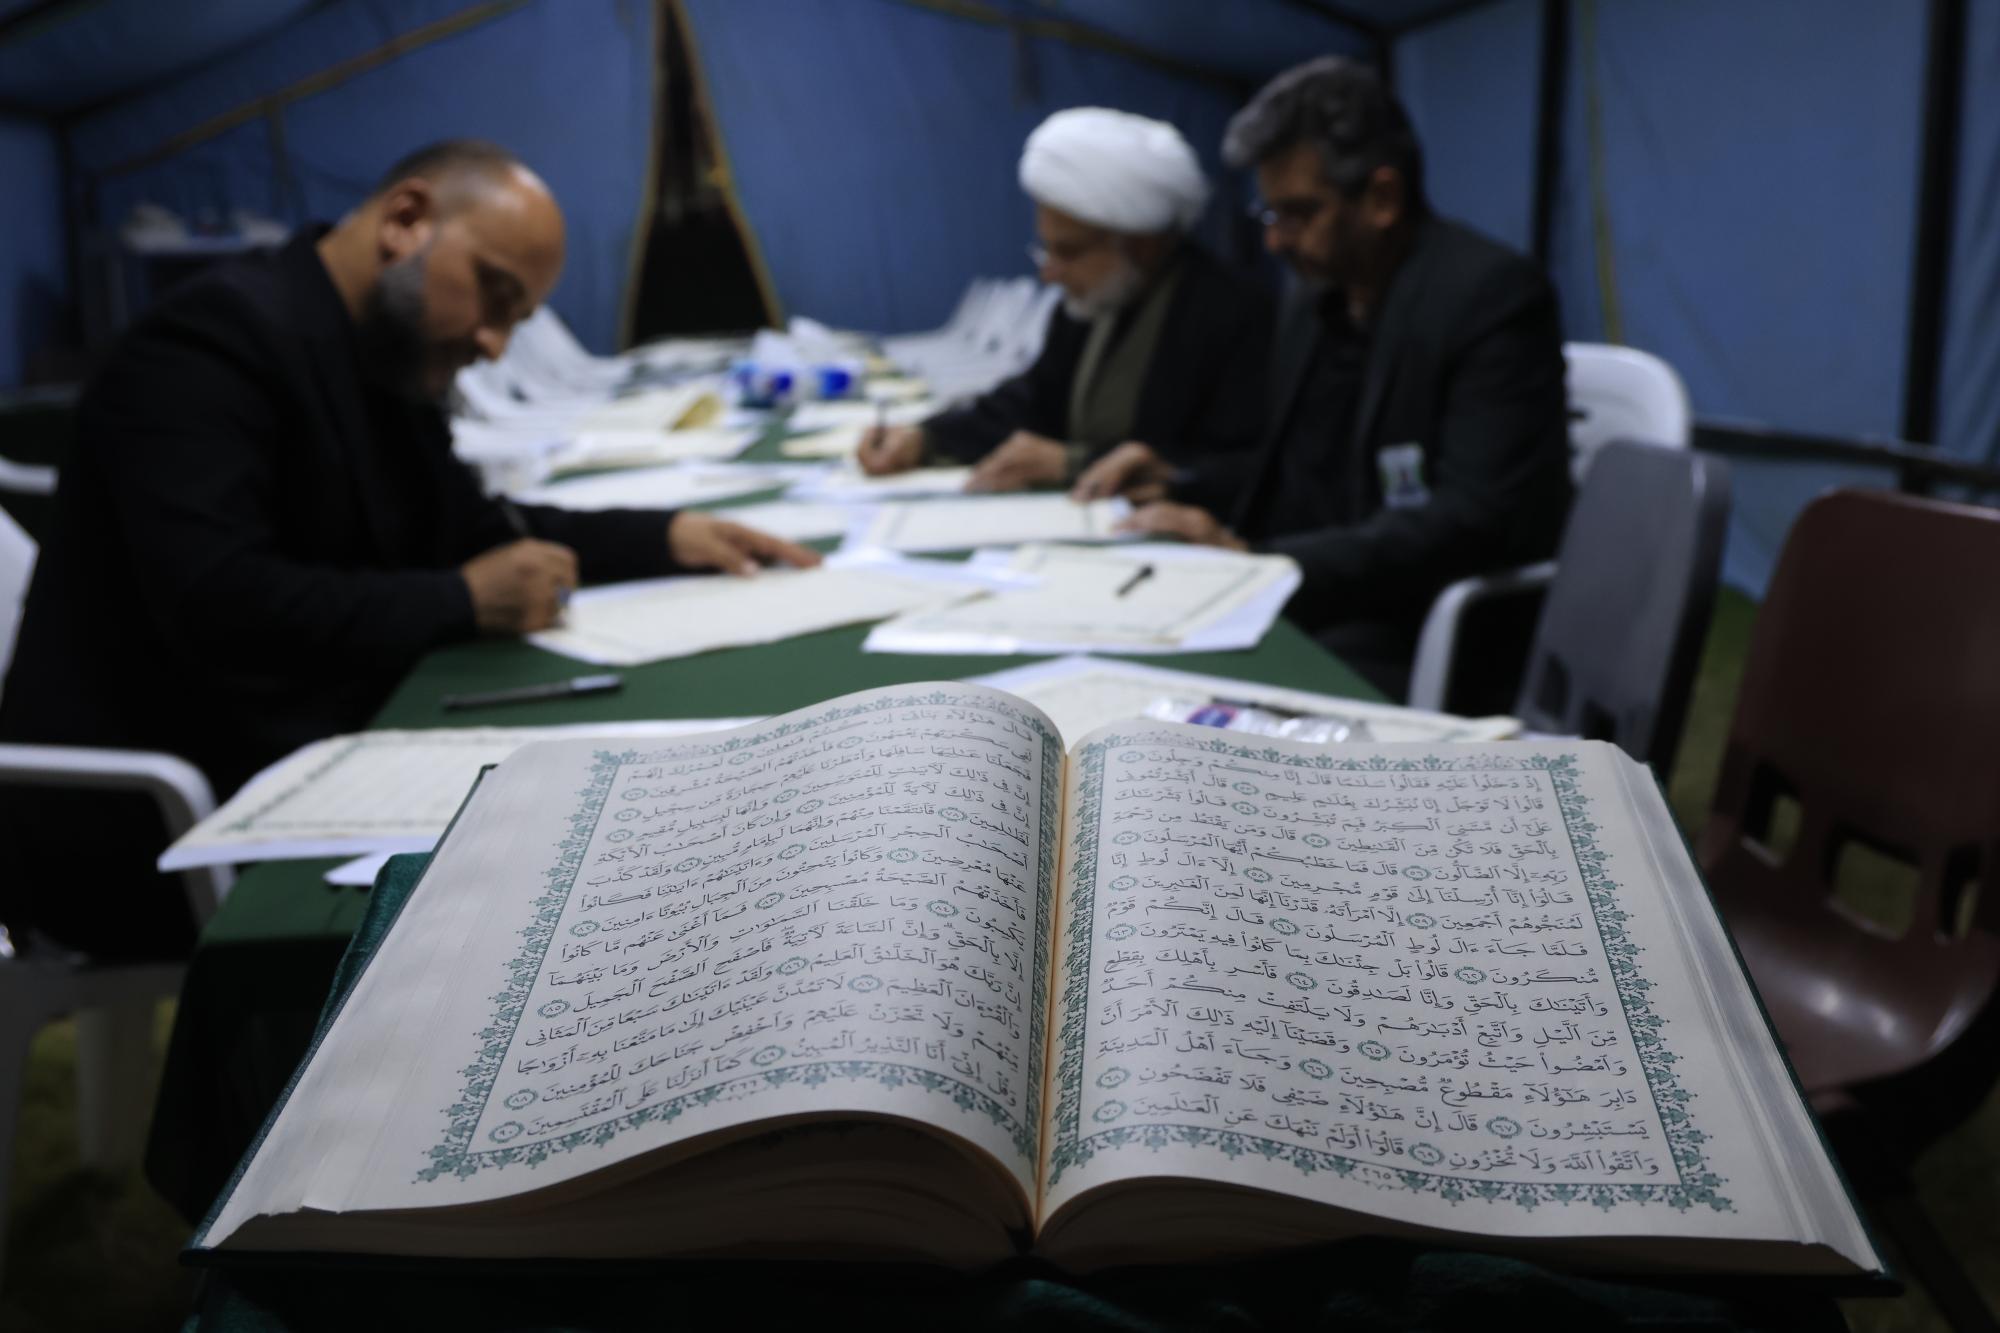 إِذْ دَخَلُواْ عَلَيْهِ فَقَالُواْ سَلَٰمًا قَالَ إِنَّا مِنكُمْ وَجِلُونَ ٥٢
قَالُواْ لَا تَوْجَلْ إِنَّا نُبَشِّرُكَ بِغُلَٰمٍ عَلِيمٍ ٥٣ قَالَ أَبَشَّرْتُمُونِي
عَلَىٰٓ أَن مَّسَّنِيَ ٱلْكِبَرُ فَبِمَ تُبَشِّرُونَ ٥٤ قَالُواْ بَشَّرْنَٰكَ
بِٱلْحَقِّ فَلَا تَكُن مِّنَ ٱلْقَٰنِطِينَ ٥٥ قَالَ وَمَن يَقْنَطُ مِن رَّحْمَةِ
رَبِّهِۦٓ إِلَّا ٱلضَّآلُّونَ ٥٦ قَالَ فَمَا خَطْبُكُمْ أَيُّهَا ٱلْمُرْسَلُونَ ٥٧
قَالُوٓاْ إِنَّآ أُرْسِلْنَآ إِلَىٰ قَوْمٍ مُّجْرِمِينَ ٥٨ إِلَّآ ءَالَ لُوطٍ إِنَّا
لَمُنَجُّوهُمْ أَجْمَعِينَ ٥٩ إِلَّا ٱمْرَأَتَهُۥ قَدَّرْنَآ إِنَّهَا لَمِنَ ٱلْغَٰبِرِينَ ٦٠
فَلَمَّا جَآءَ ءَالَ لُوطٍ ٱلْمُرْسَلُونَ ٦١ قَالَ إِنَّكُمْ قَوْمٌ
مُّنكَرُونَ ٦٢ قَالُواْ بَلْ جِئْنَٰكَ بِمَا كَانُواْ فِيهِ يَمْتَرُونَ ٦٣
وَأَتَيْنَٰكَ بِٱلْحَقِّ وَإِنَّا لَصَٰدِقُونَ ٦٤ فَأَسْرِ بِأَهْلِكَ بِقِطْعٍ
مِّنَ ٱلَّيْلِ وَٱتَّبِعْ أَدْبَٰرَهُمْ وَلَا يَلْتَفِتْ مِنكُمْ أَحَدٌ
وَٱمْضُواْ حَيْثُ تُؤْمَرُونَ ٦٥ وَقَضَيْنَآ إِلَيْهِ ذَٰلِكَ ٱلْأَمْرَ أَنَّ
دَابِرَ هَٰٓؤُلَآءِ مَقْطُوعٌ مُّصْبِحِينَ ٦٦ وَجَآءَ أَهْلُ ٱلْمَدِينَةِ
يَسْتَبْشِرُونَ ٦٧ قَالَ إِنَّ هَٰٓؤُلَآءِ ضَيْفِي فَلَا تَفْضَحُونِ ٦٨
وَٱتَّقُواْ ٱللَّهَ وَلَا تُخْزُونِ ٦٩ قَالُوٓاْ أَوَلَمْ نَنْهَكَ عَنِ ٱلْعَٰلَمِينَ ٧٠
٢٦٥
قَالَ هَٰٓؤُلَآءِ بَنَاتِيٓ إِن كُنتُمْ فَٰعِلِينَ ٧١ لَعَمْرُكَ إِنَّهُمْ
لَفِي سَكْرَتِهِمْ يَعْمَهُونَ ٧٢ فَأَخَذَتْهُمُ ٱلصَّيْحَةُ مُشْرِقِينَ ٧٣
فَجَعَلْنَا عَٰلِيَهَا سَافِلَهَا وَأَمْطَرْنَا عَلَيْهِمْ حِجَارَةً مِّن سِجِّيلٍ ٧٤
إِنَّ فِي ذَٰلِكَ لَأٓيَٰتٍ لِّلْمُتَوَسِّمِينَ ٧٥ وَإِنَّهَا لَبِسَبِيلٍ مُّقِيمٍ ٧٦
إِنَّ فِي ذَٰلِكَ لَأٓيَةً لِّلْمُؤْمِنِينَ ٧٧ وَإِن كَانَ أَصْحَٰبُ ٱلْأَيْكَةِ
لَظَٰلِمِينَ ٧٨ فَٱنتَقَمْنَا مِنْهُمْ وَإِنَّهُمَا لَبِإِمَامٍ مُّبِينٍ ٧٩ وَلَقَدْ كَذَّبَ
أَصْحَٰبُ ٱلْحِجْرِ ٱلْمُرْسَلِينَ ٨٠ وَءَاتَيْنَٰهُمْ ءَايَٰتِنَا فَكَانُواْ
عَنْهَا مُعْرِضِينَ ٨١ وَكَانُواْ يَنْحِتُونَ مِنَ ٱلْجِبَالِ بُيُوتًا ءَامِنِينَ ٨٢
فَأَخَذَتْهُمُ ٱلصَّيْحَةُ مُصْبِحِينَ ٨٣ فَمَآ أَغْنَىٰ عَنْهُم مَّا كَانُواْ
يَكْسِبُونَ ٨٤ وَمَا خَلَقْنَا ٱلسَّمَٰوَٰتِ وَٱلْأَرْضَ وَمَا بَيْنَهُمَآ
إِلَّا بِٱلْحَقِّ وَإِنَّ ٱلسَّاعَةَ لَأٓتِيَةٌ فَٱصْفَحِ ٱلصَّفْحَ ٱلْجَمِيلَ ٨٥
إِنَّ رَبَّكَ هُوَ ٱلْخَلَّٰقُ ٱلْعَلِيمُ ٨٦ وَلَقَدْ ءَاتَيْنَٰكَ سَبْعًا مِّنَ ٱلْمَثَانِي
وَٱلْقُرْءَانَ ٱلْعَظِيمَ ٨٧ لَا تَمُدَّنَّ عَيْنَيْكَ إِلَىٰ مَا مَتَّعْنَا بِهِۦٓ أَزْوَٰجًا
مِّنْهُمْ وَلَا تَحْزَنْ عَلَيْهِمْ وَٱخْفِضْ جَنَاحَكَ لِلْمُؤْمِنِينَ ٨٨
وَقُلْ إِنِّيٓ أَنَا ٱلنَّذِيرُ ٱلْمُبِينُ ٨٩ كَمَآ أَنزَلْنَا عَلَى ٱلْمُقْتَسِمِينَ ٩٠
٢٦٦